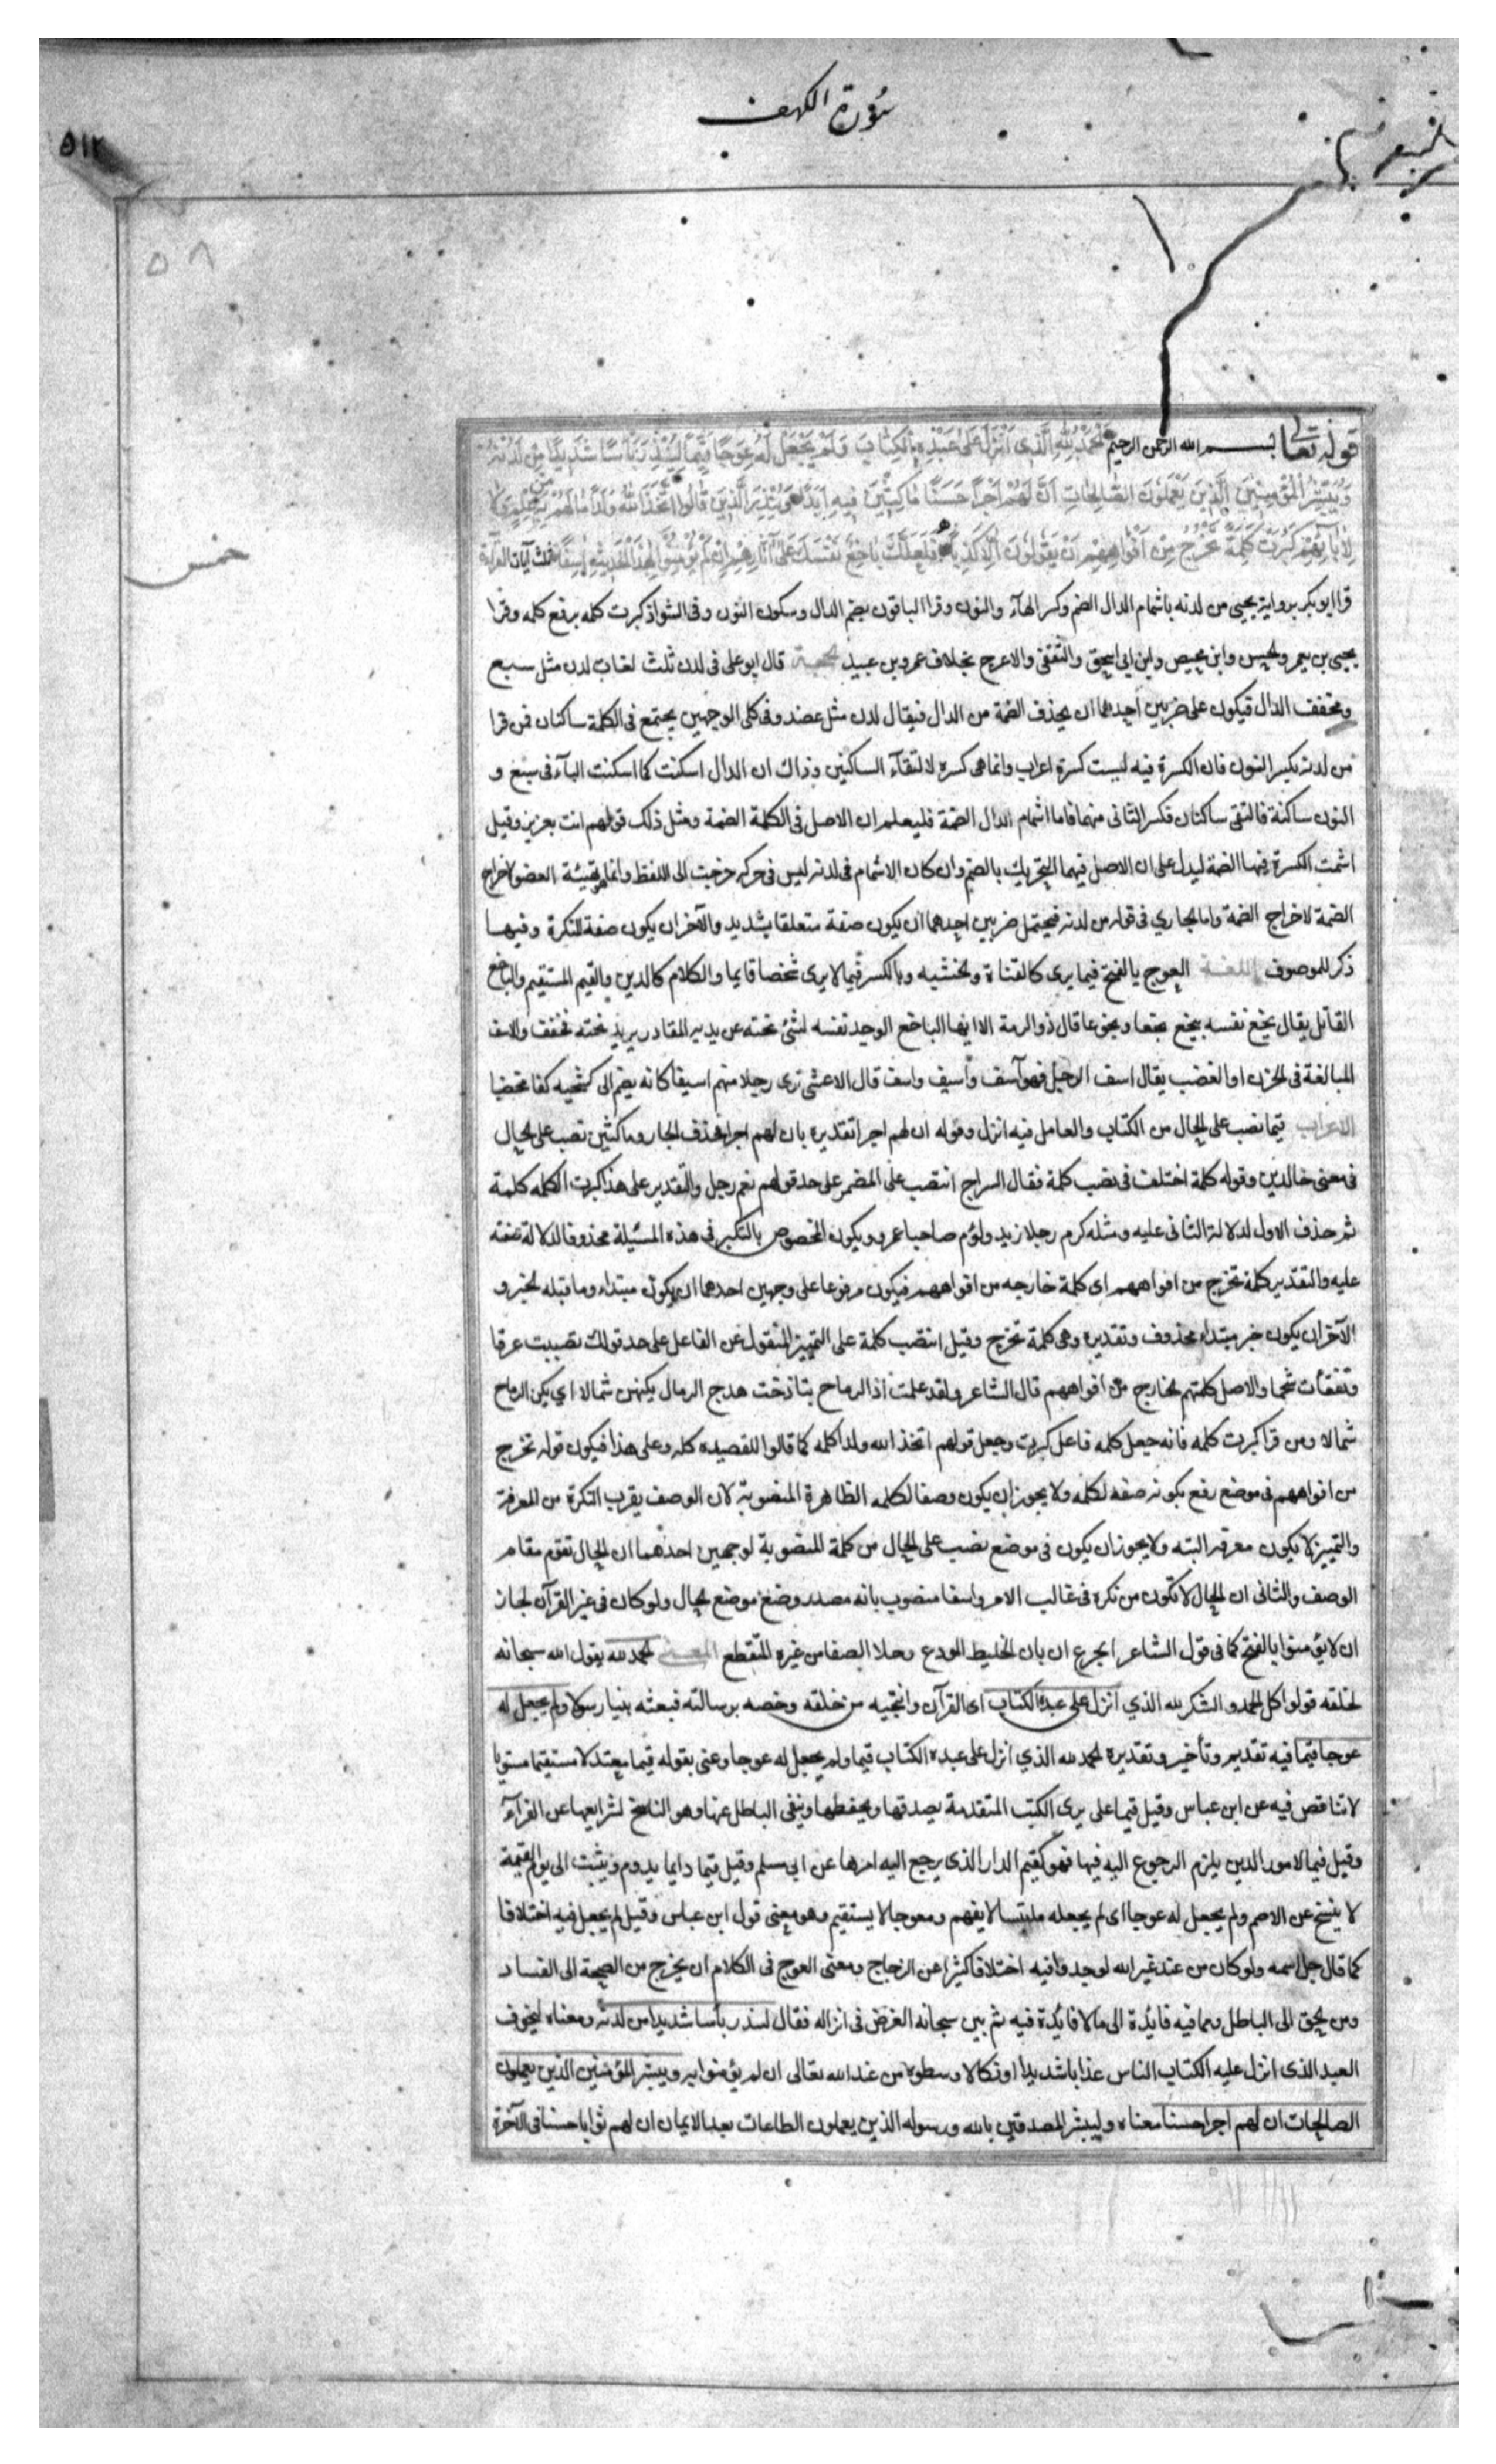 سورة الكهف
٥١٢
٥٨
خمس
قوله تعالى بسم الله الرحمن الرحيم الْحَمْدُ لِلَّهِ الَّذِي أَنْزَلَ عَلَى عَبْدِهِ الْكِتَابَ وَلَمْ يَجْعَلْ لَهُ عِوَجًا قَيِّمًا لِيُنْذِرَ بَأْسًا شَدِيدًا مِنْ لَدُنْهُ
وَيُبَشِّرَ الْمُؤْمِنِينَ الَّذِينَ يَعْمَلُونَ الصَّالِحَاتِ أَنَّ لَهُمْ أَجْرًا حَسَنًا مَاكِثِينَ فِيهِ أَبَدًا وَيُنْذِرَ الَّذِينَ قَالُوا اتَّخَذَ اللَّهُ وَلَدًا مَا لَهُمْ بِهِ مِنْ عِلْمٍ وَلَا
لِآبَائِهِمْ كَبُرَتْ كَلِمَةً تَخْرُجُ مِنْ أَفْوَاهِهِمْ إِنْ يَقُولُونَ إِلَّا كَذِبًا فَلَعَلَّكَ بَاخِعٌ نَفْسَكَ عَلَى آثَارِهِمْ إِنْ لَمْ يُؤْمِنُوا بِهَذَا الْحَدِيثِ أَسَفًا آيات القراءة
قرا ابو بكر برواية يحيى من لدنه باشمام الدال الضم وكسر الهآء والنون وقرا الباقون بضم الدال وسكون النون وفى الشواذ كبرت كلمه برفع كلمه وقرا
يحيى بن يعمر والحسن وابن محيصن وابن ابى اسحق والثقفى والاعرج بخلاف عمرو بن عبيد الحجة قال ابو على فى لدن ثلث لغات لدن مثل سبع
ويخفف الدال فيكون على ضربين احدهما ان يحذف الضمة من الدال فيقال لدن مثل عضد وفى كلى الوجهين يجتمع فى الكلمة ساكنان فمن قرا
من لدنه بكسر النون فان الكسرة فيه ليست كسرة اعراب وانما هى كسره لالتقآء الساكنين وذاك ان الدال اسكنت كما اسكنت البآء فى سبع و
النون ساكنة فالتقى ساكنان فكسر الثانى منهما فاما اشمام الدال الضمة فليعلم ان الاصل فى الكلمة الضمة ومثل ذلك قولهم انت بعزيز وقيل
اشمت الكسرة فيها الضمة ليدل على ان الاصل فيهما التحريك بالضم وان كان الاشمام فى لدنه ليس فى حركه خرجت الى اللفظ وانما هو تهيئة العضو لاخراج
الضمة لاخراج الضمة واما الجاري فى قوله من لدنه فيحتمل ضربين احدهما ان يكون صفة متعلقا بشديد والآخر ان يكون صفة للنكرة وفيها
ذكر للموصوف اللغة العوج بالفتح فيما يرى كالقناة والخشبه وبالكسر فيما لا يرى شخصا قايما والكلام كالدين والقيم المستقيم والباخع
القاتل يقال بخع نفسه يبخع بخعا وبخوعا قال ذو الرمة الا ايها الباخع الوجد نفسه لشئ نحته عن يديه المقادر يريد نحته فخفف والاسف
المبالغة فى الحزن او الغضب يقال اسف الرجل فهو آسف وأسيف واسف قال الاعشى ترى رجلا منهم اسيفا كانه يضم الى كشحيه كفا مخضبا
الاعراب قيما نصب على الحال من الكتاب والعامل فيه انزل وقوله ان لهم اجرا تقديره بان لهم اجرا فحذف الجار وماكثين نصب على الحال
فى معنى خالدين وقوله كلمة اختلف فى نصب كلمة فقال السراج انتصب على المضمر على حد قولهم نعم رجل والتقدير على هذا كبرت الكلمه كلمة
ثم حذف الاول لدلالة الثانى عليه ومثله كرم رجلا زيد ولؤم صاحبا عمرو ويكون المخصوص بالتكبير فى هذه المسئلة محذوفا لدلالة صفته
عليه والتقدير كلمة تخرج من افواههم اى كلمة خارجه من افواههم فيكون مرفوعا على وجهين احدهما ان يكون مبتداء وما قبله الخبر و
الآخر ان يكون خبر مبتداء محذوف وتقديره وهى كلمة تخرج وقيل انتصب كلمة على التمييز المنقول عن الفاعل على حد قولك تصببت عرقا
وتفقأت شحما والاصل كلمتهم الخارج من افواههم قال الشاعر ولقد علمت اذا الرماح تناوحت هدج الرمال يكبهن شمالا اي يكبن الرماح
شمالا ومن قرا كبرت كلمه فانه جعل كلمه فاعل كبرت وجعل قولهم اتخذ الله ولدا كلمه كما قالوا للقصيده كله وعلى هذا فيكون قوله تخرج
من افواههم فى موضع رفع بكونه صفه لكلمه ولا يجوز ان يكون وصفا لكلمه الظاهرة المنصوبة لان الوصف يقرب النكرة من المعرفة
والتمييز لا يكون معرفه البته ولا يجوز ان يكون فى موضع نصب على الحال من كلمة المنصوبة لوجهين احدهما ان الحال تقوم مقام
الوصف والثانى ان الحال لا تكون من نكره فى غالب الامر واسفا منصوب بانه مصدر وضع موضع الحال ولو كان فى غير القرآن لجاز
ان لا يؤمنوا بالفتح كما فى قول الشاعر اتجزع ان بان الخليط المودع وحبل الصفا من عزة المتقطع المعنى الحمد لله يقول الله سبحانه
لخلقه قولوا كل الحمد والشكر لله الذي انزل على عبده الكتاب اى القرآن وانتجبه من خلقه وخصه برسالته فبعثه نبيا رسولا ولم يجعل له
عوجا قيما فيه تقديم وتأخير وتقديره الحمد لله الذي انزل على عبده الكتاب قيما ولم يجعل له عوجا وعنى بقوله قيما معتدلا مستقيما مستويا
لا تناقض فيه عن ابن عباس وقيل قيما على يرى الكتب المتقدمة يصدقها ويحفظها وينفى الباطل عنها وهو الناسخ لشرايعها عن الفرآء
وقيل قيما لامور الدين يلزم الرجوع اليه فيها فهو كقيم الدار الذى يرجع اليه امرها عن ابى مسلم وقيل قيما دايما يدوم ويثبت الى يوم القيمة
لا ينسخ عن الاصم ولم يجعل له عوجا اى لم يجعله ملتبسا لا يفهم ومعوجا لا يستقيم وهو معنى قول ابن عباس وقيل لم يجعل فيه اختلافا
كما قال جل اسمه ولو كان من عند غير الله لوجدوا فيه اختلافا كثيرا عن الزجاج ومعنى العوج فى الكلام ان يخرج من الصحة الى الفساد
ومن الحق الى الباطل ومما فيه فايدة الى ما لا فايدة فيه ثم بين سبحانه الغرض فى انزاله فقال لينذر بأسا شديدا من لدنه ومعناه ليخوف
العبد الذى انزل عليه الكتاب الناس عذابا شديدا او نكالا وسطوة من عند الله تعالى ان لم يؤمنوا به ويبشر المؤمنين الذين يعملون
الصالحات ان لهم اجرا حسنا معناه وليبشر المصدقين بالله ورسوله الذين يعملون الطاعات بعد الايمان ان لهم ثوابا حسنا فى الآخرة